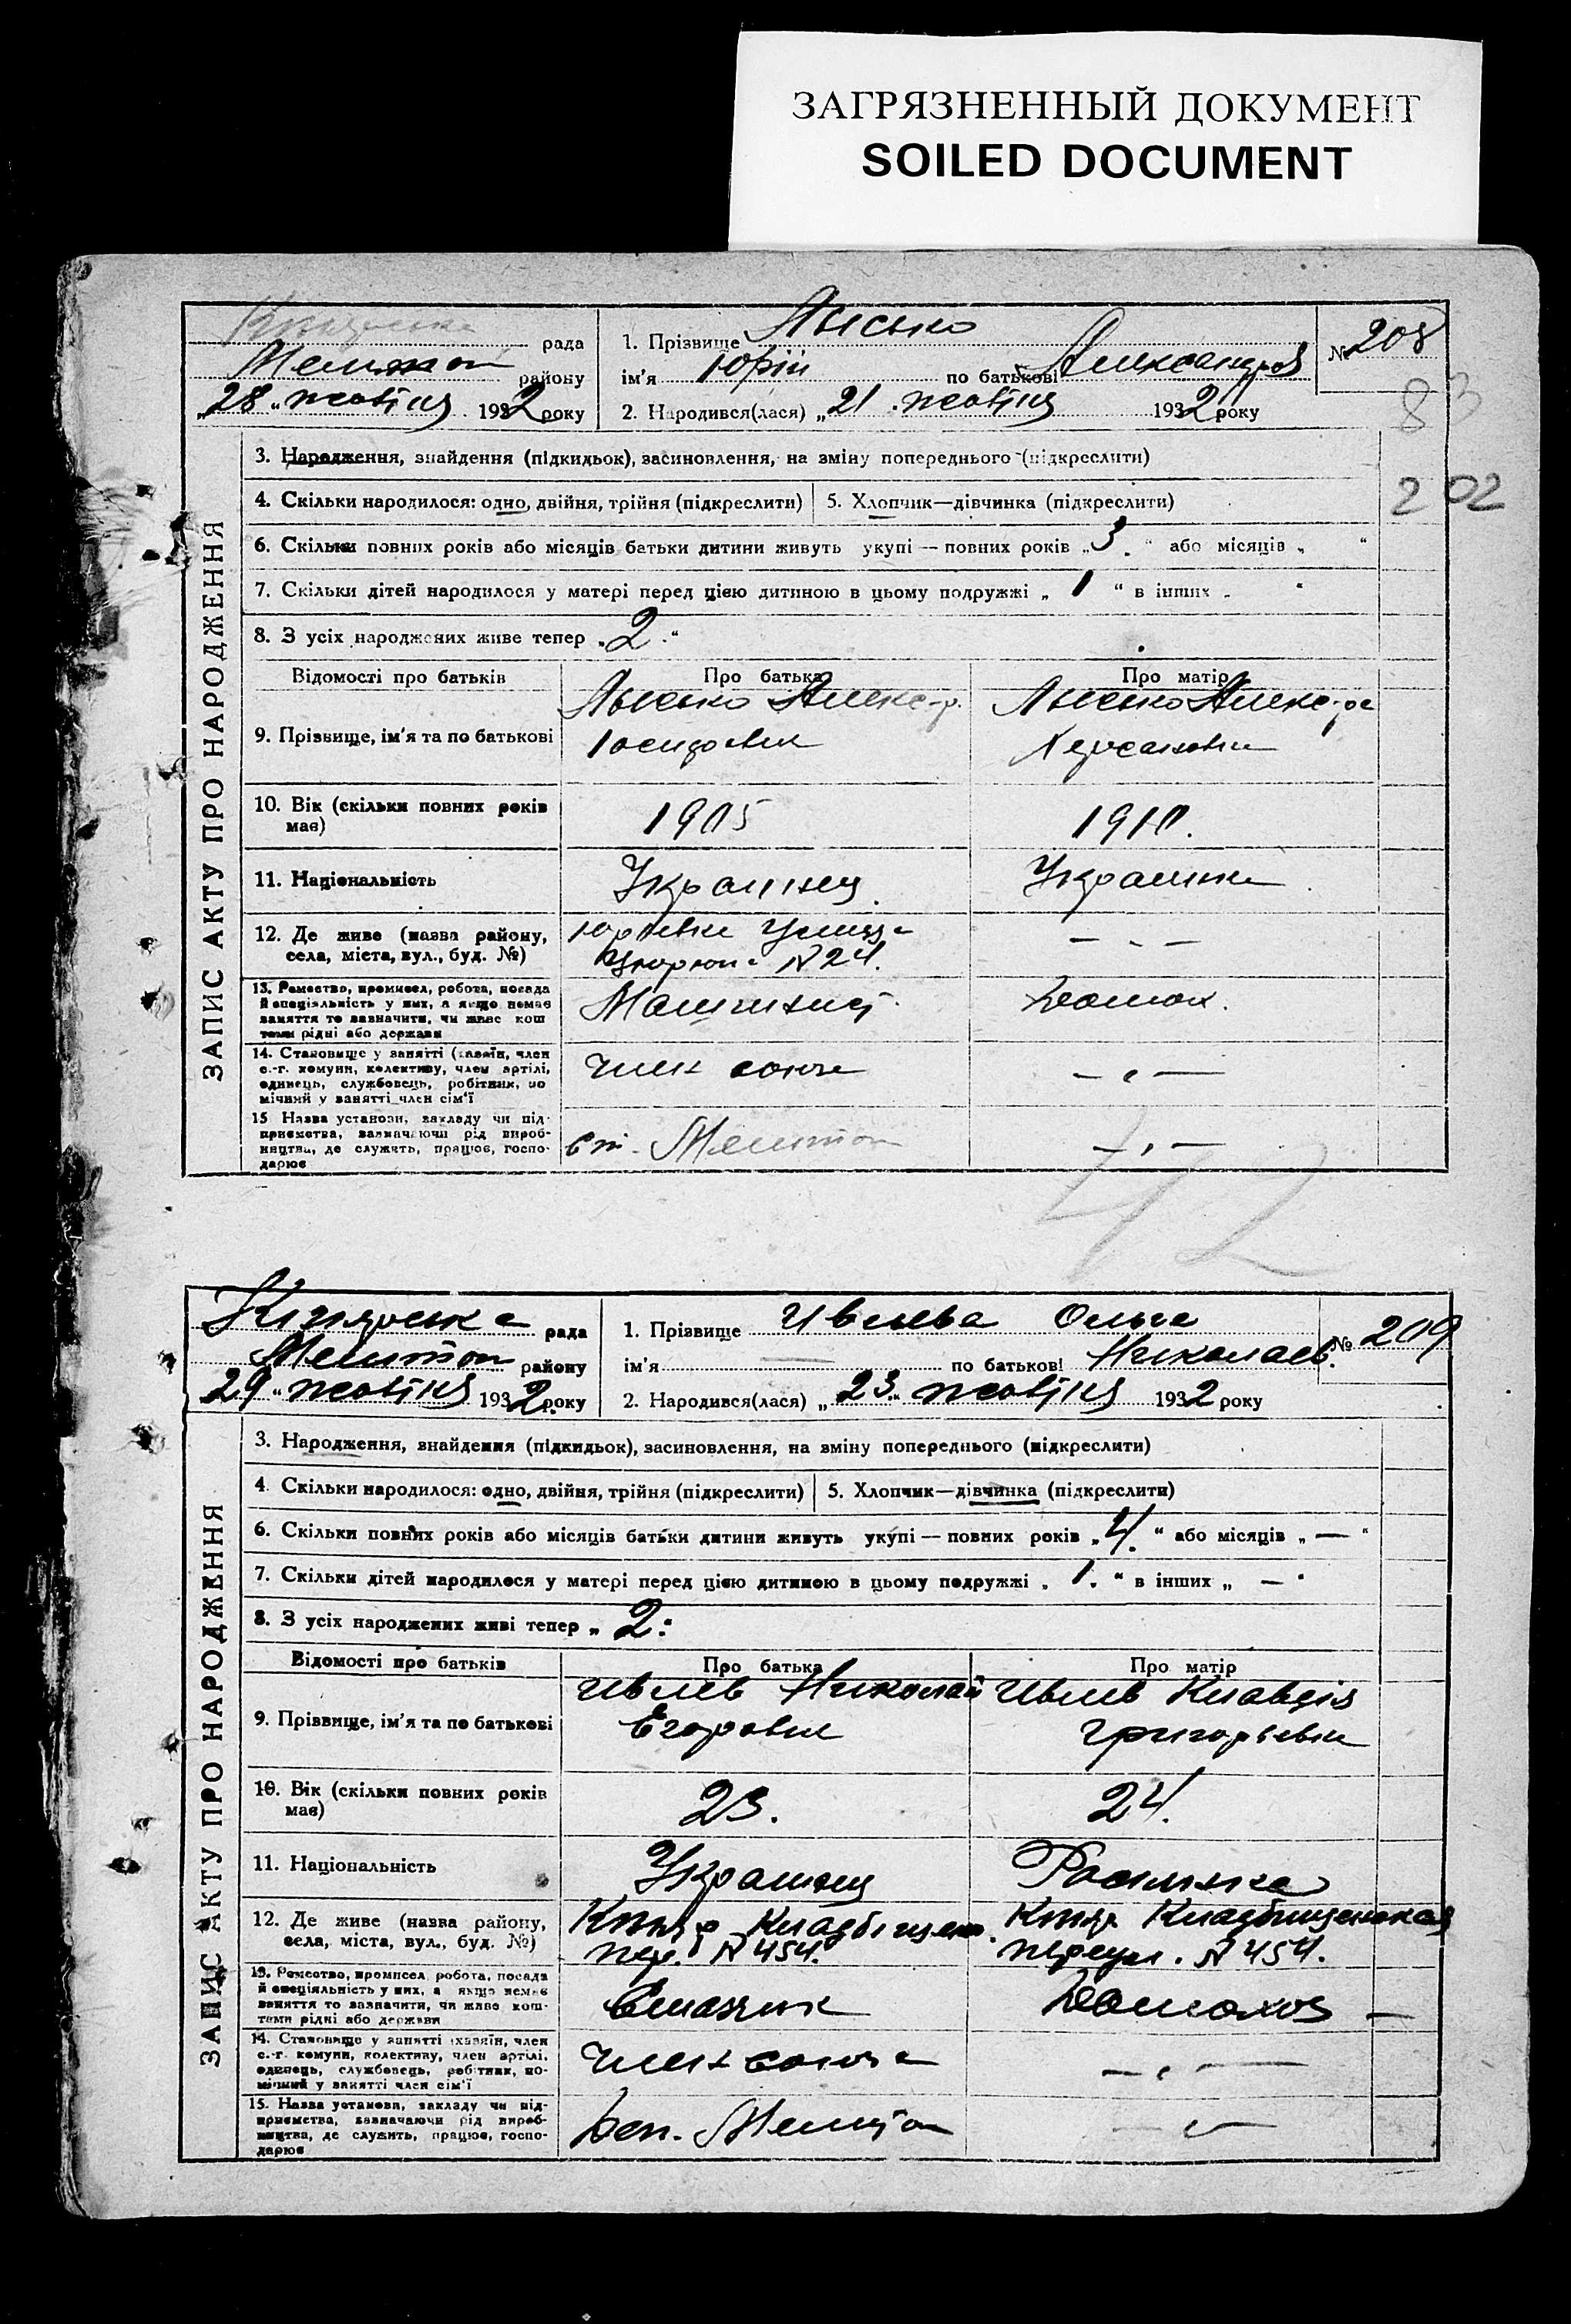 ЗАГРЯЗНЕННЫЙ ДОКУМЕНТ
SOILED DOCUMENT
рада
Мелитоп району
„28“ жовтня 1932 року
1. Прізвище Лысько
ім'я Юрій по батькові Александров
2. Народився(лася) „21“ жовтня 1932 року
№ 208
83
202
ЗАПИС АКТУ ПРО НАРОДЖЕННЯ
3. Народження, знайдення (підкидьок), засиновлення, на зміну попереднього (підкреслити)
4. Скільки народилося: одно, двійня, трійня (підкреслити) 5. Хлопчик—дівчинка (підкреслити)
6. Скільки повних років або місяців батьки дитини живуть укупі — повних років „3“ або місяців „ “
7. Скільки дітей народилося у матері перед цією дитиною в цьому подружжі „ 1 “ в інших „ “
8. З усіх народжених живе тепер „2“
Відомості про батьків Про батька Про матір
Лысько Алекс-р. Лысько Алекс-ра
9. Прізвище, ім'я та по батькові
10. Вік (скільки повних років
має) 1905 1910.
11. Національність Украинец Украинка
12. Де живе (назва району,
села, міста, вул., буд. №) № 24.
13. Ремество, промисел, робота, посада
й спеціяльність у них, а якщо немає
заняття то зазначити, чи живе кош
тами рідні або держави
Машинист Домох.
14. Становище у занятті (хазяїн, член
с.-г. комуни, колективу, член артілі,
одинець, службовець, робітник, по
мічний у занятті член сім'ї
член союза — „ —
15 Назва установи, закладу чи під-
приємства, зазначаючи рід вироб-
ництва, де служить, працює, госпо-
дарює
ст. Мелитоп — „ —
42
Кизярська рада
Мелитоп району
29 „ жовтня 1932. року
1. Прізвище Ивлева Ольга
ім'я — по батькові Николаев.
2. Народився(лася) „23“ жовтня 1932 року
№ 209
ЗАПИС АКТУ ПРО НАРОДЖЕННЯ
3. Народження, знайдення (підкидьок), засиновлення, на зміну попереднього (підкреслити)
4. Скільки народилося: одно, двійня, трійня (підкреслити) 5. Хлопчик—дівчинка (підкреслити)
6. Скільки повних років або місяців батьки дитини живуть укупі — повних років „4.“ або місяців „—“
7. Скільки дітей народилося у матері перед цією дитиною в цьому подружжі „ 1. “ в інших „ — “
8. З усіх народжених живі тепер „ 2. “
Відомості про батьків Про батька Про матір
Ивлев Николай Ивлев Клавдія
9. Прізвище, ім'я та по батькові Егорович Григорьевна
10. Вік (скільки повних років
має) 23. 24.
11. Національність Украинец Росиянка
12. Де живе (назва району,
села, міста, вул., буд. №)
Кизяр Кладбищен. Кизяр Кладбищенская
пер. № 454. переул. № 454.
13. Ремество, промисел, робота, посада
й спеціяльність у них, а якщо немає
заняття то зазначити, чи живе кош-
тами рідні або держави
Смазчик Домохоз —
14. Становище у занятті (хазяїн, член
с.-г. комуни, колективу, член артілі,
одинець, службовець, робітник, по-
мічний у занятті член сім'ї
член союза — „ —
15. Назва установи, закладу чи під-
приємства, зазначаючи рід вироб-
ництва, де служить, працює, госпо-
дарює
Деп. Мелитоп — „ —